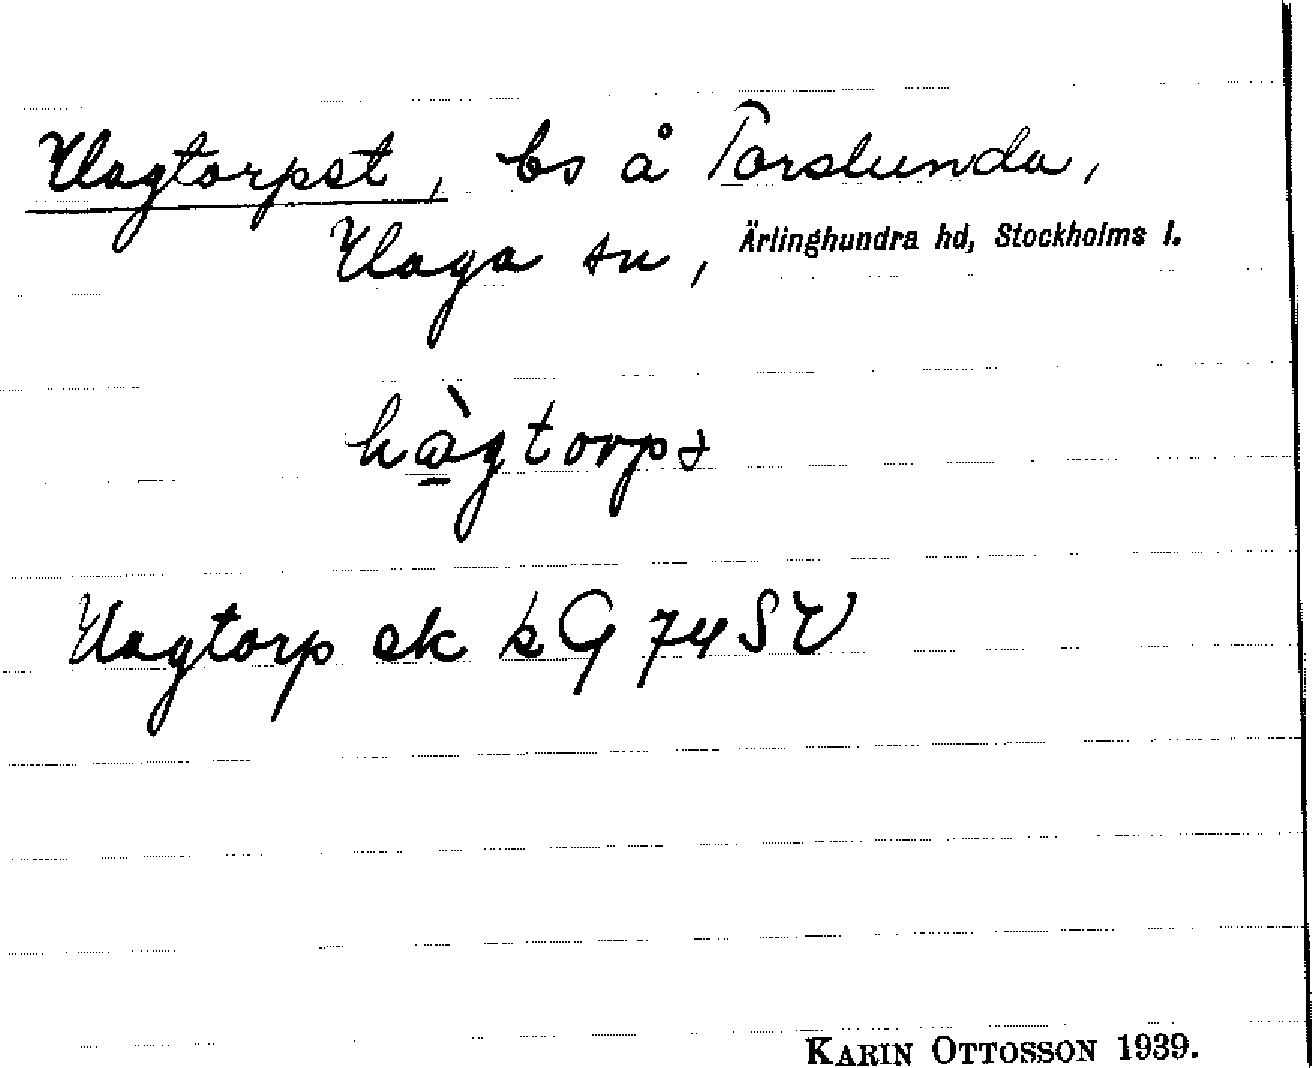 Hagtorpet, bs å Torslunda,
Haga sn, Ärlinghundra hd, Stockholms l.
hàgtorpə
Hagtorp ek kG 74 SV
KARIN OTTOSSON 1939.